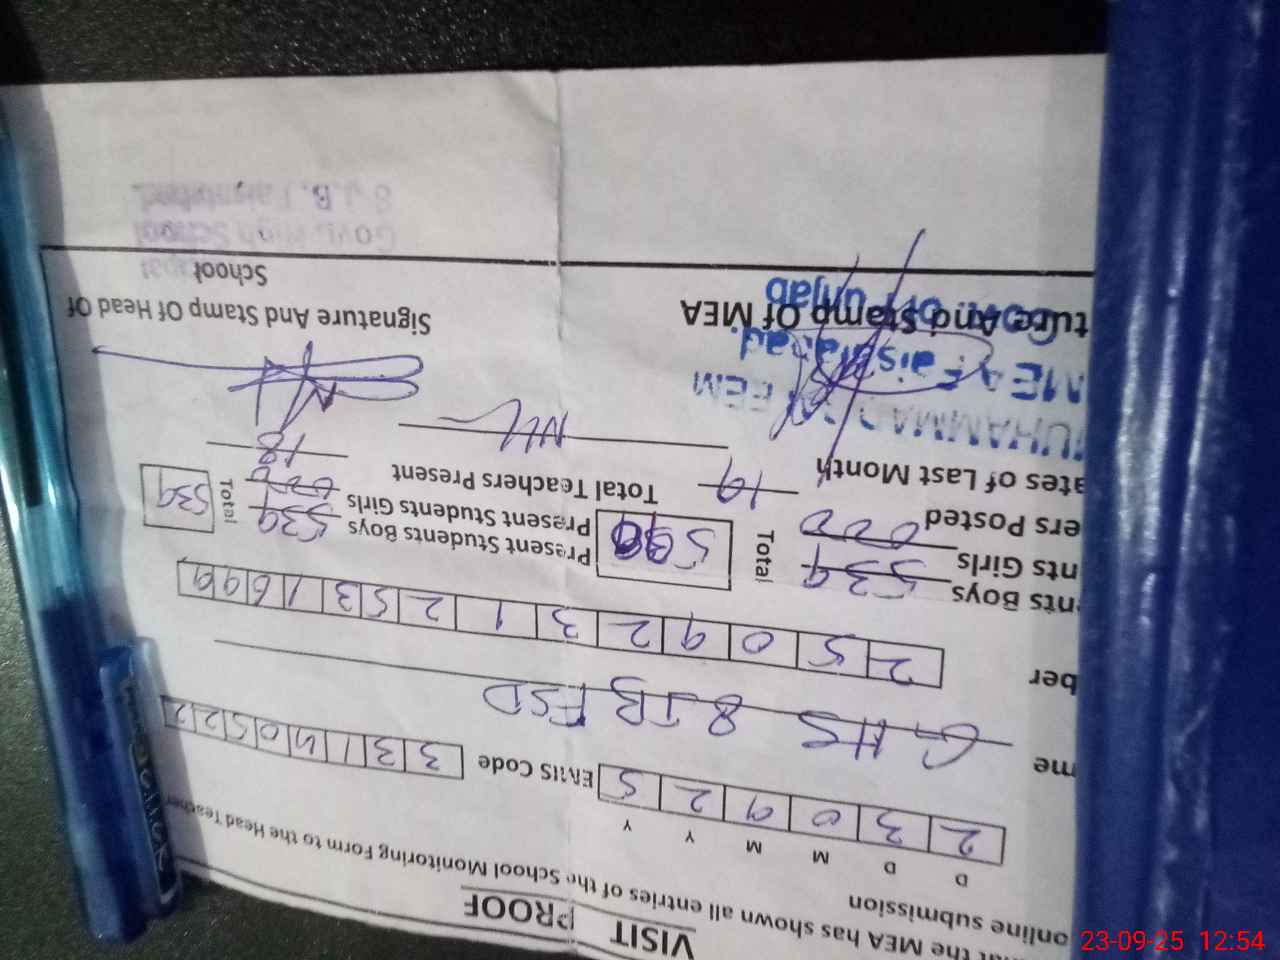 VISIT PROOF
hat the MEA has shown all entries of the School Monitoring Form to the Head Teacher
online submission
D D M M Y Y
2 3 0 9 2 5 EMIS Code 3 3 1 4 0 5 2 2
me G HS 8 JB FSD
ber 2 5 0 9 2 3 1 2 5 3 1 6 9 9
nts Boys 539 Total 590 Present Students Boys 539 Total 539
nts Girls 000 Present Students Girls 000
ers Posted 19 Total Teachers Present 18
ates of Last Month Nil
MUHAMMAD
MEA Faisalabad
Govt. of Punjab
ture And Stamp Of MEA
Signature And Stamp Of Head Of School
Govt. High School
8 J.B. Faisalabad
23-09-25 12:54